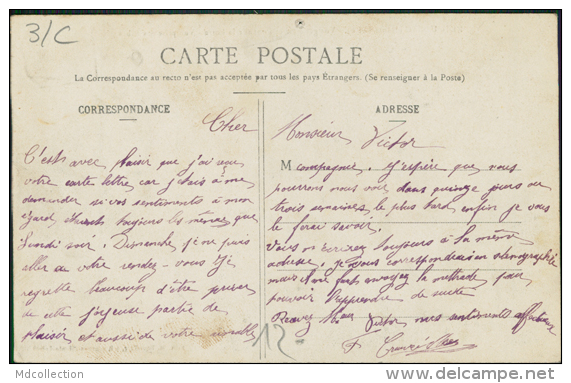 3/C
CARTE POSTALE
La Correspondance au recto n'est pas acceptée par tous les pays Étrangers. (Se renseigner à la Poste)
CORRESPONDANCE
ADRESSE
Cher
Monsieur Victor
C'est avec plaisir que j'ai reçu
votre carte lettre car j'étais à me
demander si vos sentiments à mon
égard étaient toujours les mêmes que
lundi soir. Dimanche je ne puis
aller au votre rendez-vous et je
regrette beaucoup d'être privée
de cette joyeuse partie de
plaisir et aussi de votre aimable
M compagnie. J'espère que vous
pourrez nous voir dans quinze jours ou
trois semaines le plus tard, enfin je vous
le ferai savoir.
Vous m'écrirez toujours à la même
adresse. Je vous correspondrai en sténographie
mais il me faut envoyer la méthode pour
pouvoir l'apprendre de suite
Recevez Victor mes sentiments affectueux
12
Mdcollection
delcampe.net